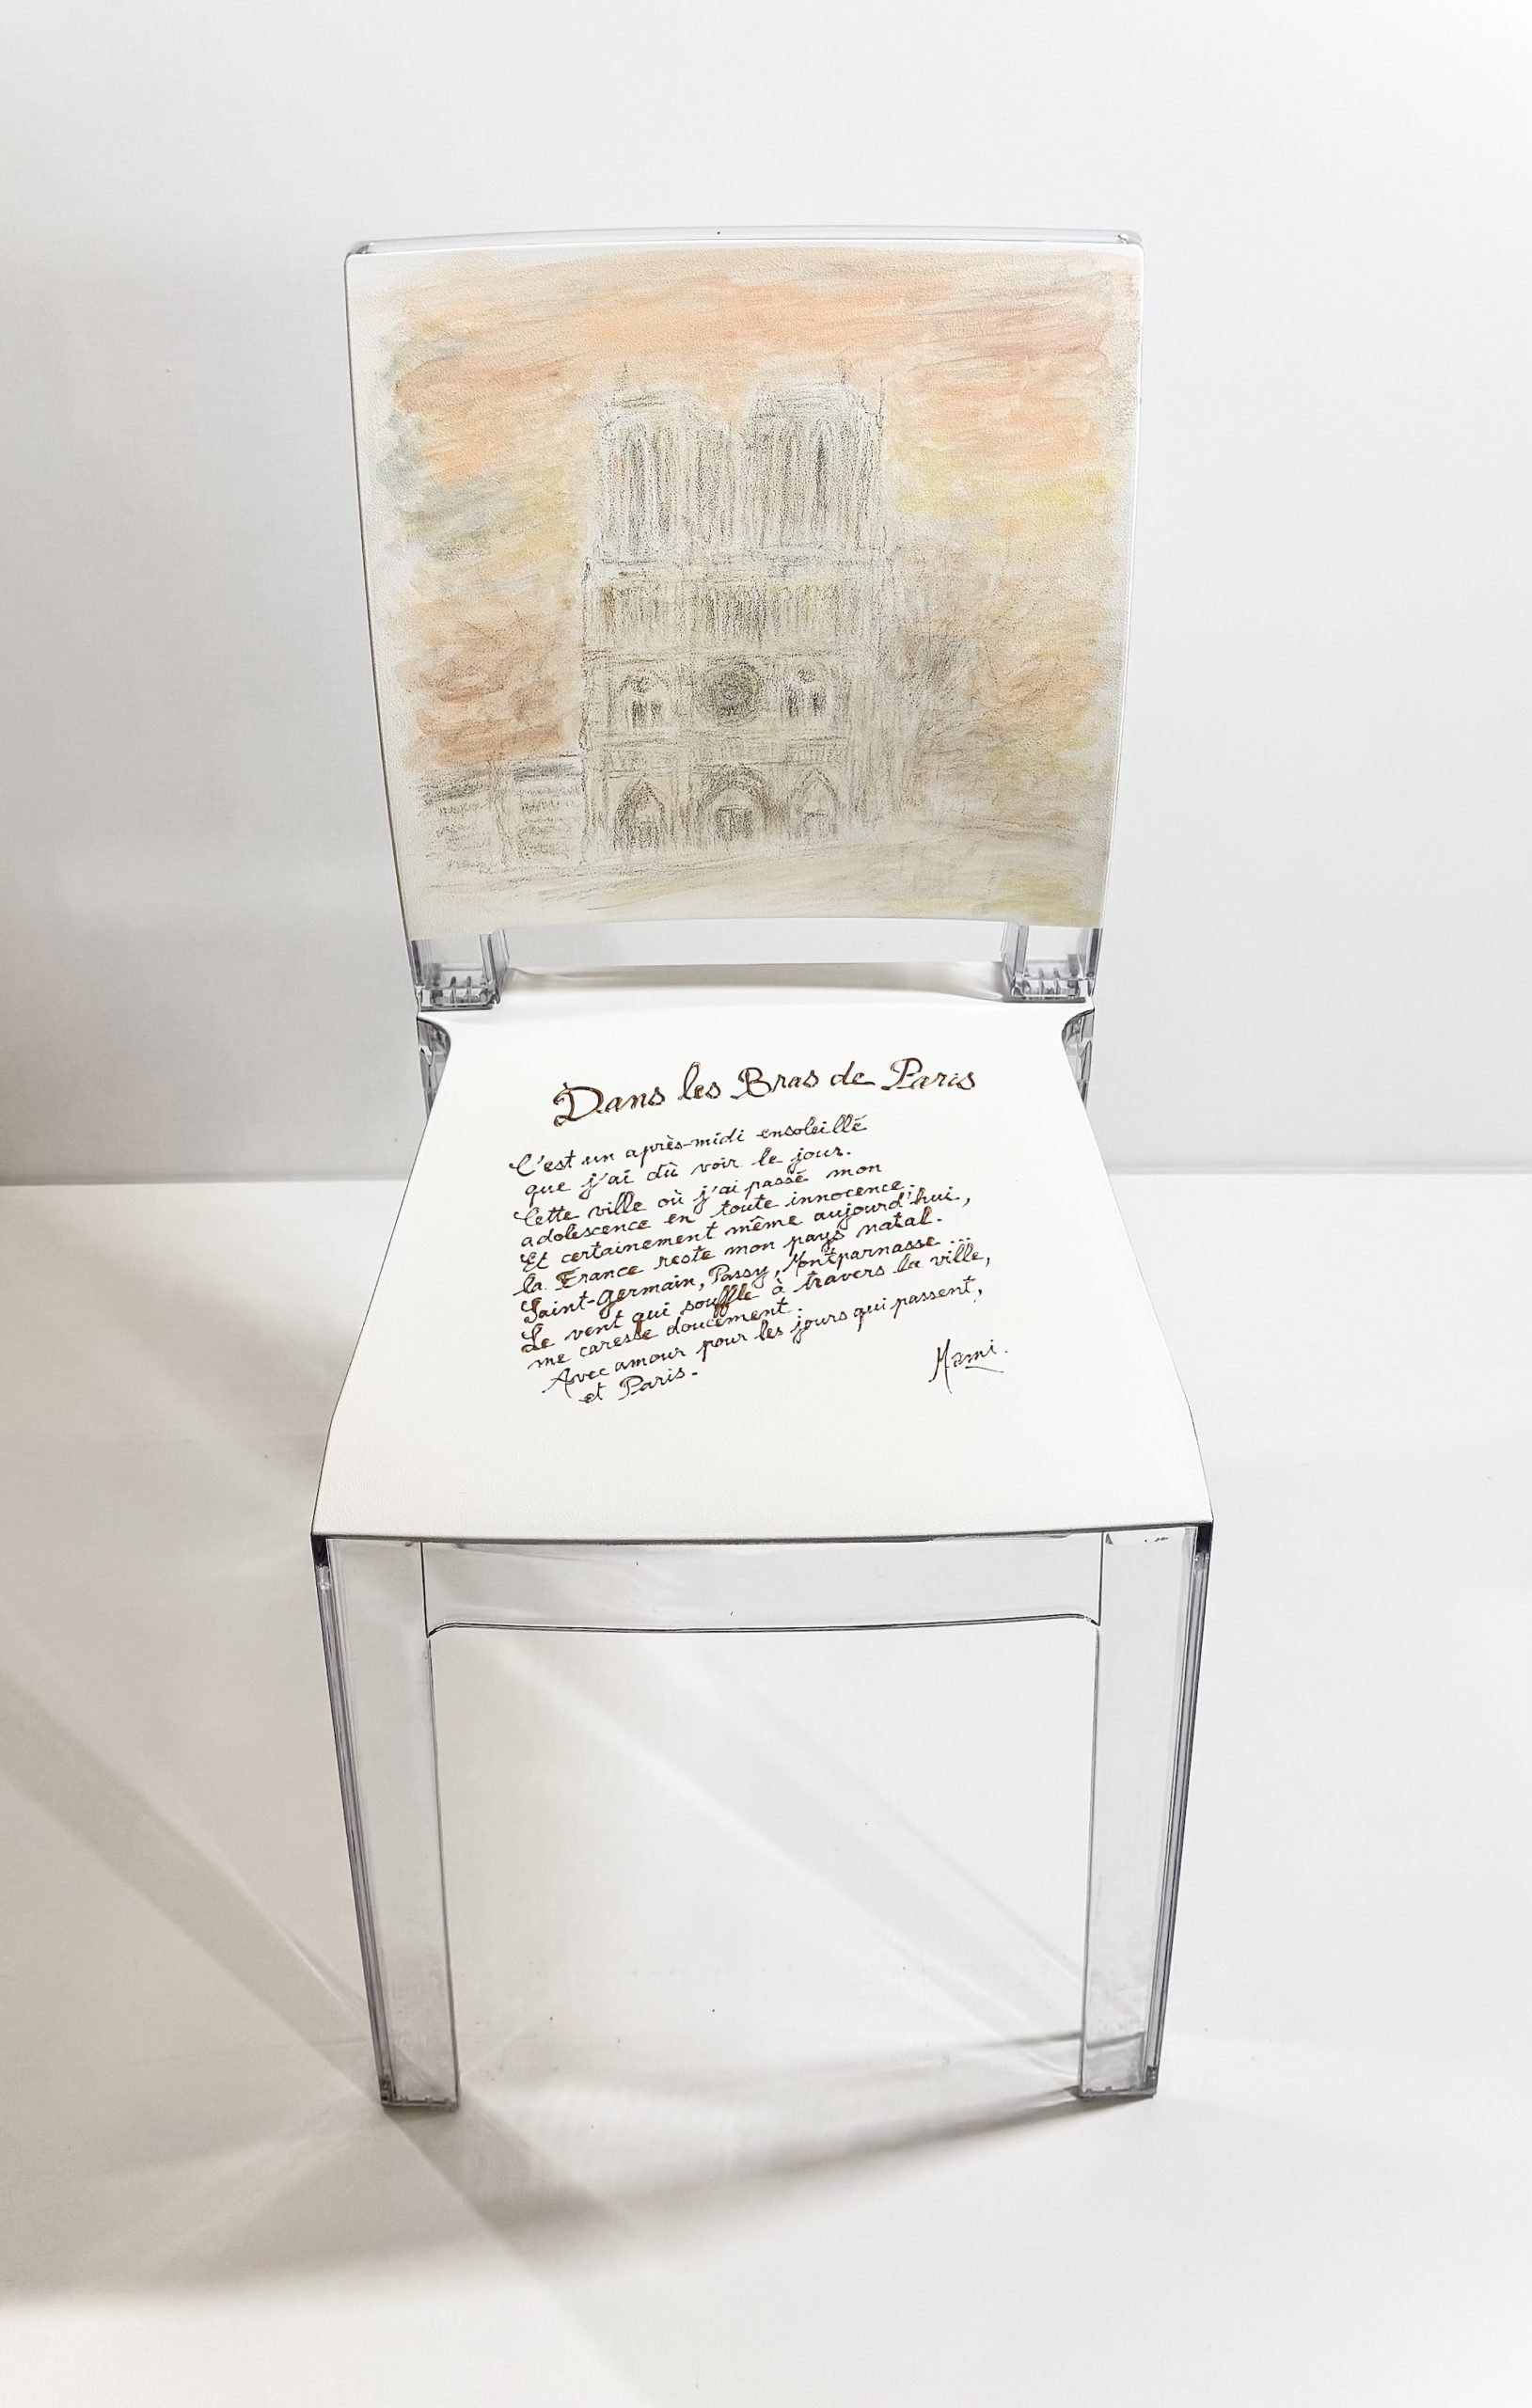 Dans les Bras de Paris
C'est un après-midi ensoleillé
que j'ai dû voir le jour.
Cette ville où j'ai passé mon
adolescence en toute innocence.
Et certainement même aujourd'hui,
la France reste mon pays natal.
Saint-Germain, Passy, Montparnasse...
Le vent qui souffle à travers la ville,
me caresse doucement.
Avec amour pour les jours qui passent,
et Paris.
Mami.